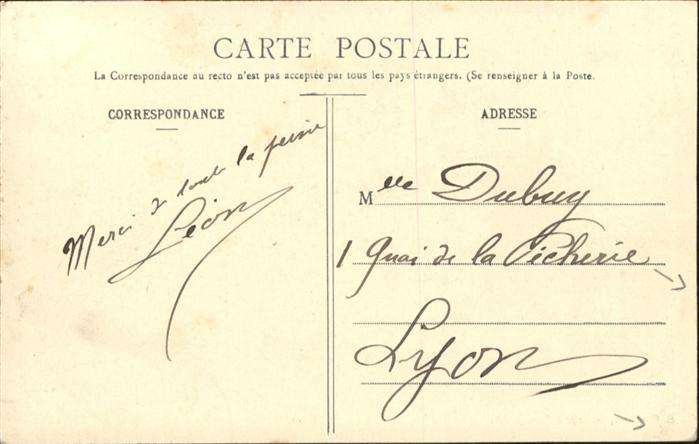 CARTE POSTALE
La Correspondance au recto n'est pas acceptée par tous les pays étrangers. (Se renseigner à la Poste.
CORRESPONDANCE
Merci de toute la peine
Léon
ADRESSE
Mlle Dubuy
1 Quai de la Picherie
Lyon